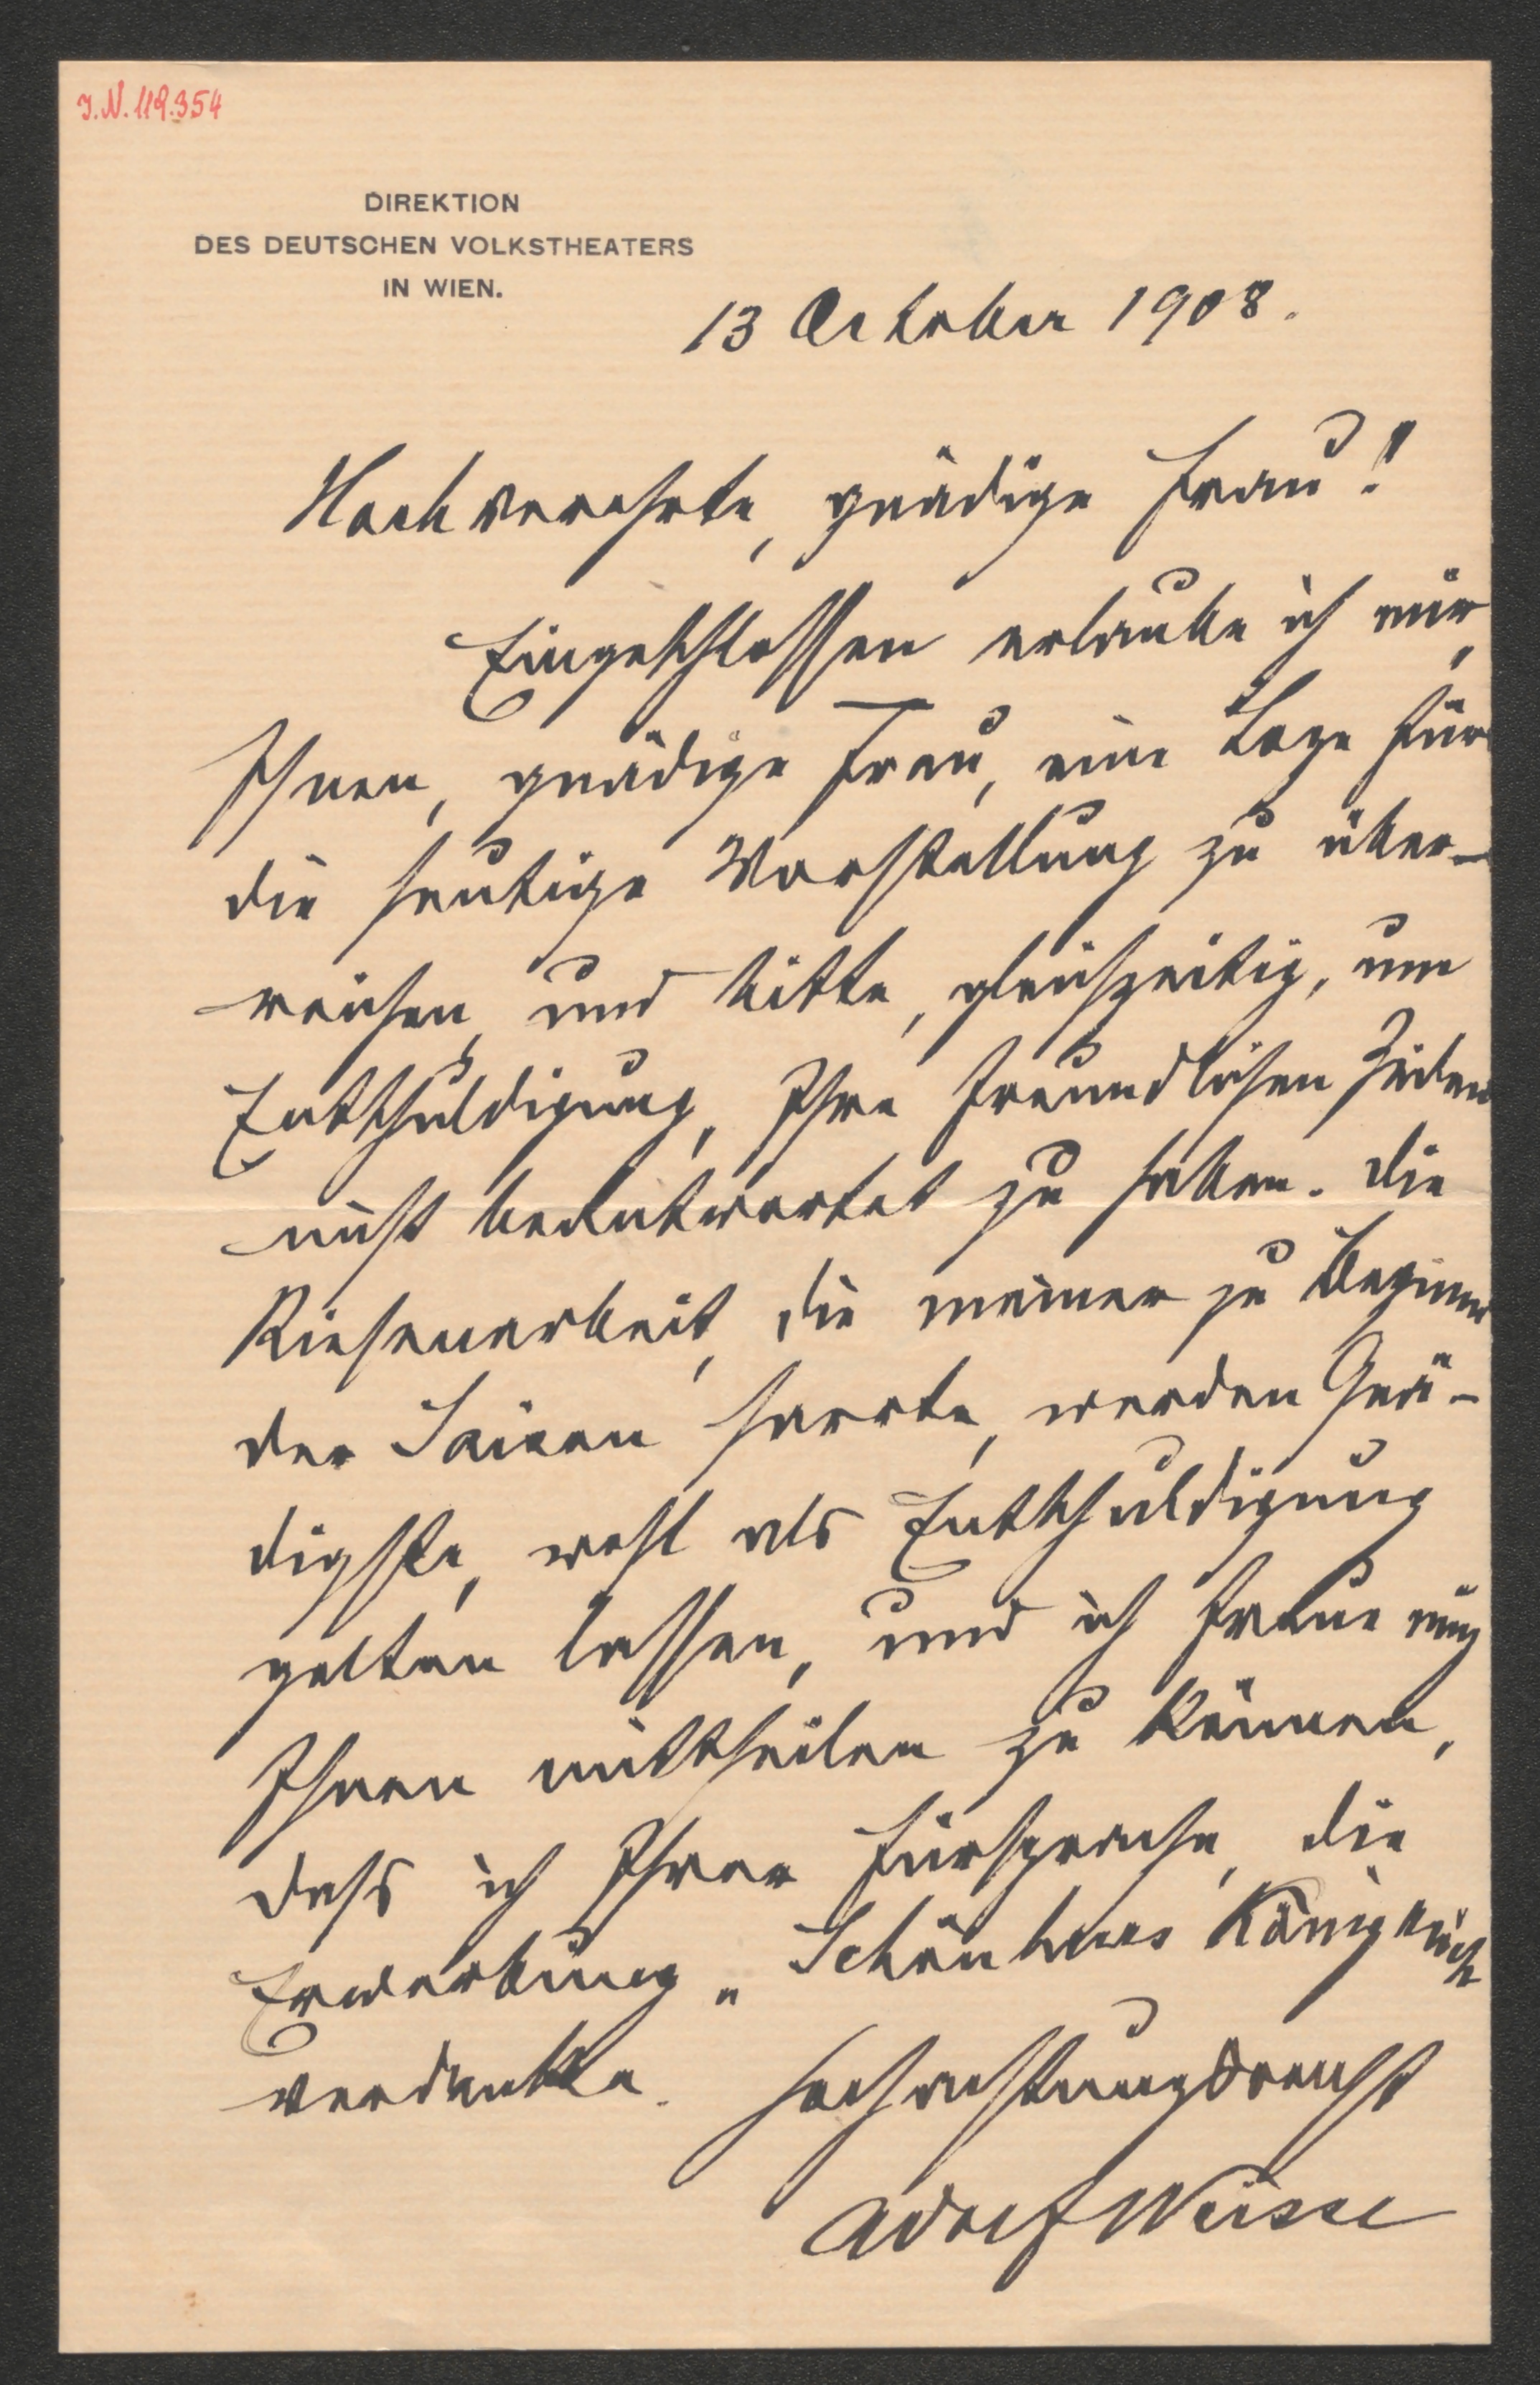 I.N. 119.354
DIREKTION
DES DEUTSCHEN VOLKSTHEATERS
IN WIEN.
13 October 1908.
Hochverehrte, gnädige Frau!
Eingeschlossen erlaube ich mir,
Ihnen, gnädige Frau, eine Loge für
die heutige Vorstellung zu über-
reichen, und bitte, gleichzeitig, um
Entschuldigung, Ihre freundlichen Zeilen
nicht beantwortet zu haben. Die
Riesenarbeit, die meiner zu Beginn
der Saison harrte, werden Gnä-
digste, wohl als Entschuldigung
gelten lassen, und ich freue mich
Ihnen mittheilen zu können,
dass ich Ihrer Fürsprache, die
Erwerbung „Schönherrs Königreich
verdanke. Hochachtungsvollst
Adolf Weisse